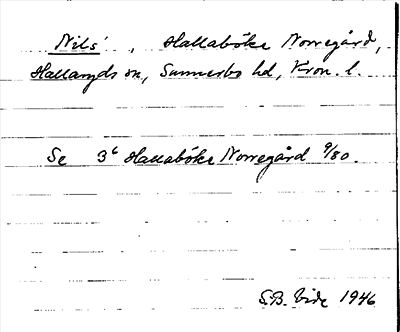 Nils' , Hallaböke Norregård,
Hallaryds sn, Sunnerbo hd, Kron. l.
Se 3⁶ Hallaböke Norregård 9/80.
S.B. Vide 1946